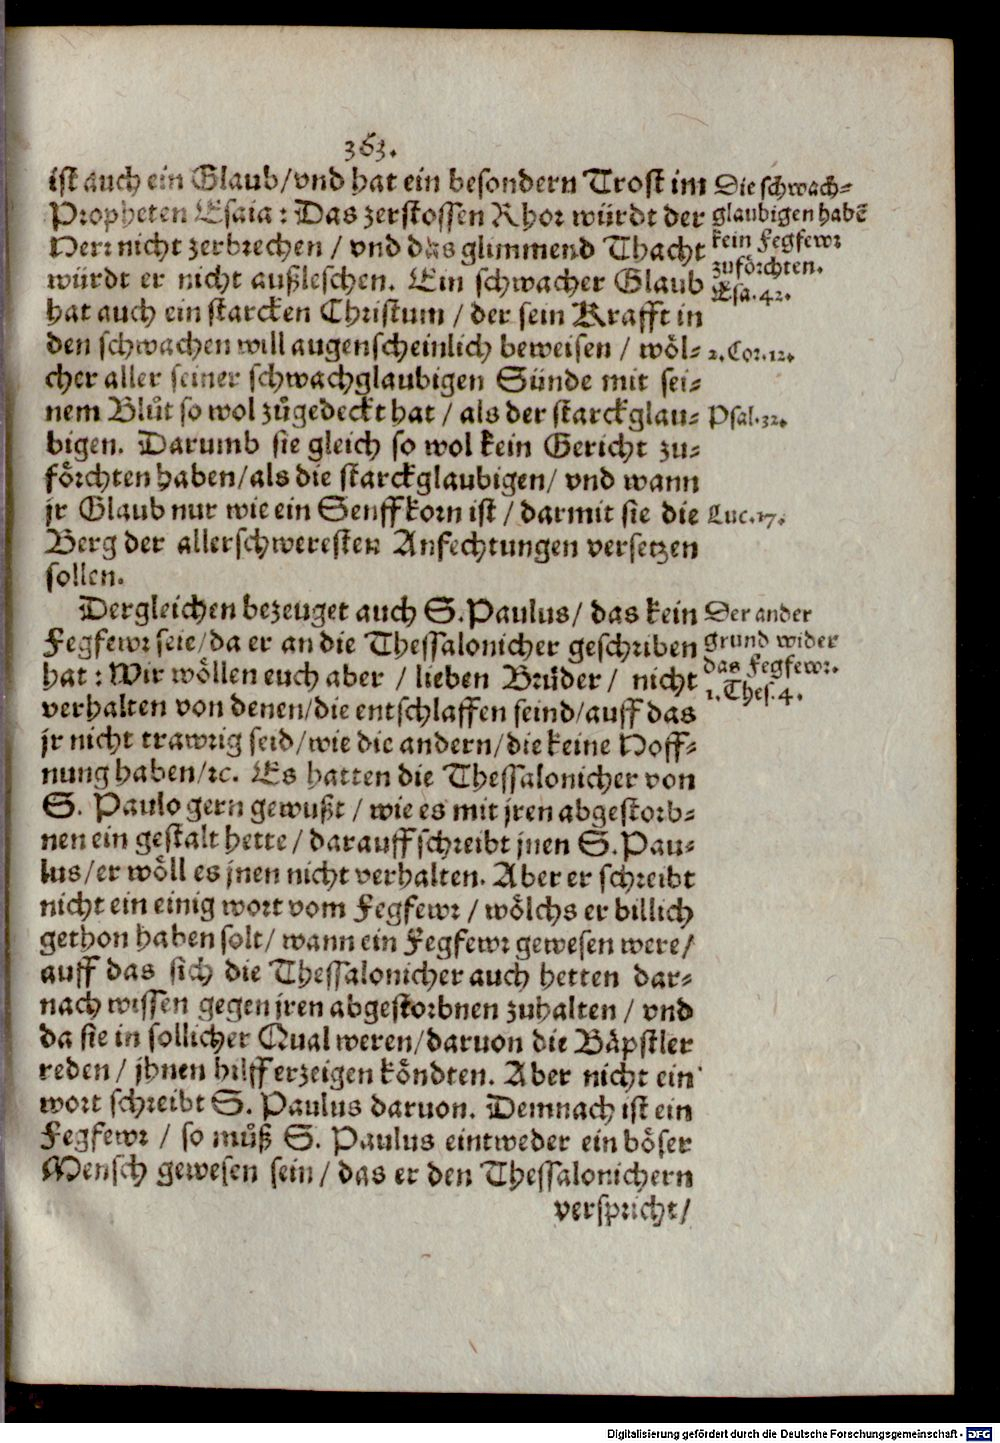 363.
ist auch ein Glaub/vnd hat ein besondern Trost im
Propheten Esaia: Das zerstossen Rhor würdt der
Herr nicht zerbrechen / vnd das glimmend Thacht
würdt er nicht außleschen. Ein schwacher Glaub
hat auch ein starcken Christum / der sein Krafft in
den schwachen will augenscheinlich beweisen / wöl-
cher aller seiner schwachglaubigen Sünde mit sei-
nem Blůt so wol zůgedeckt hat / als der starckglau-
bigen. Darumb sie gleich so wol kein Gericht zu-
förchten haben/als die starckglaubigen/ vnd wann
jr Glaub nur wie ein Senffkorn ist / darmit sie die
Berg der allerschweresten Anfechtungen versetzen
sollen.
Die schwach-
glaubigen habē
kein Fegfewr
zuförchten.
Esa.42.
2.Cor.12.
Psal.32.
Luc.17.
Dergleichen bezeuget auch S.Paulus/ das kein
Fegfewr seie/da er an die Thessalonicher geschriben
hat: Wir wöllen euch aber / lieben Brüder / nicht
verhalten von denen/die entschlaffen seind/auff das
jr nicht trawrig seid/wie die andern/die keine Hoff-
nung haben/ꝛc. Es hatten die Thessalonicher von
S. Paulo gern gewußt / wie es mit jren abgestorb-
nen ein gestalt hette / darauff schreibt jnen S.Pau-
lus/er wöll es jnen nicht verhalten. Aber er schreibt
nicht ein einig wort vom Fegfewr / wölchs er billich
gethon haben solt/ wann ein Fegfewr gewesen were/
auff das sich die Thessalonicher auch hetten dar-
nach wissen gegen jren abgestorbnen zuhalten / vnd
da sie in sollicher Qual weren/daruon die Bäpstler
reden / jhnen hilff erzeigen köndten. Aber nicht ein
wort schreibt S. Paulus daruon. Demnach ist ein
Fegfewr / so můß S. Paulus eintweder ein böser
Mensch gewesen sein / das er den Thessalonichern
verspricht/
Der ander
grund wider
das Fegfewr.
1.Thes.4.
Digitalisierung gefördert durch die Deutsche Forschungsgemeinschaft - DFG